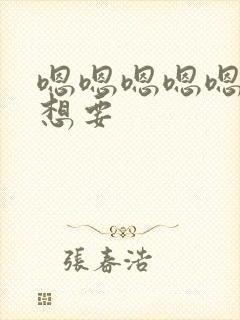 嗯嗯嗯嗯嗯
想要
張春浩